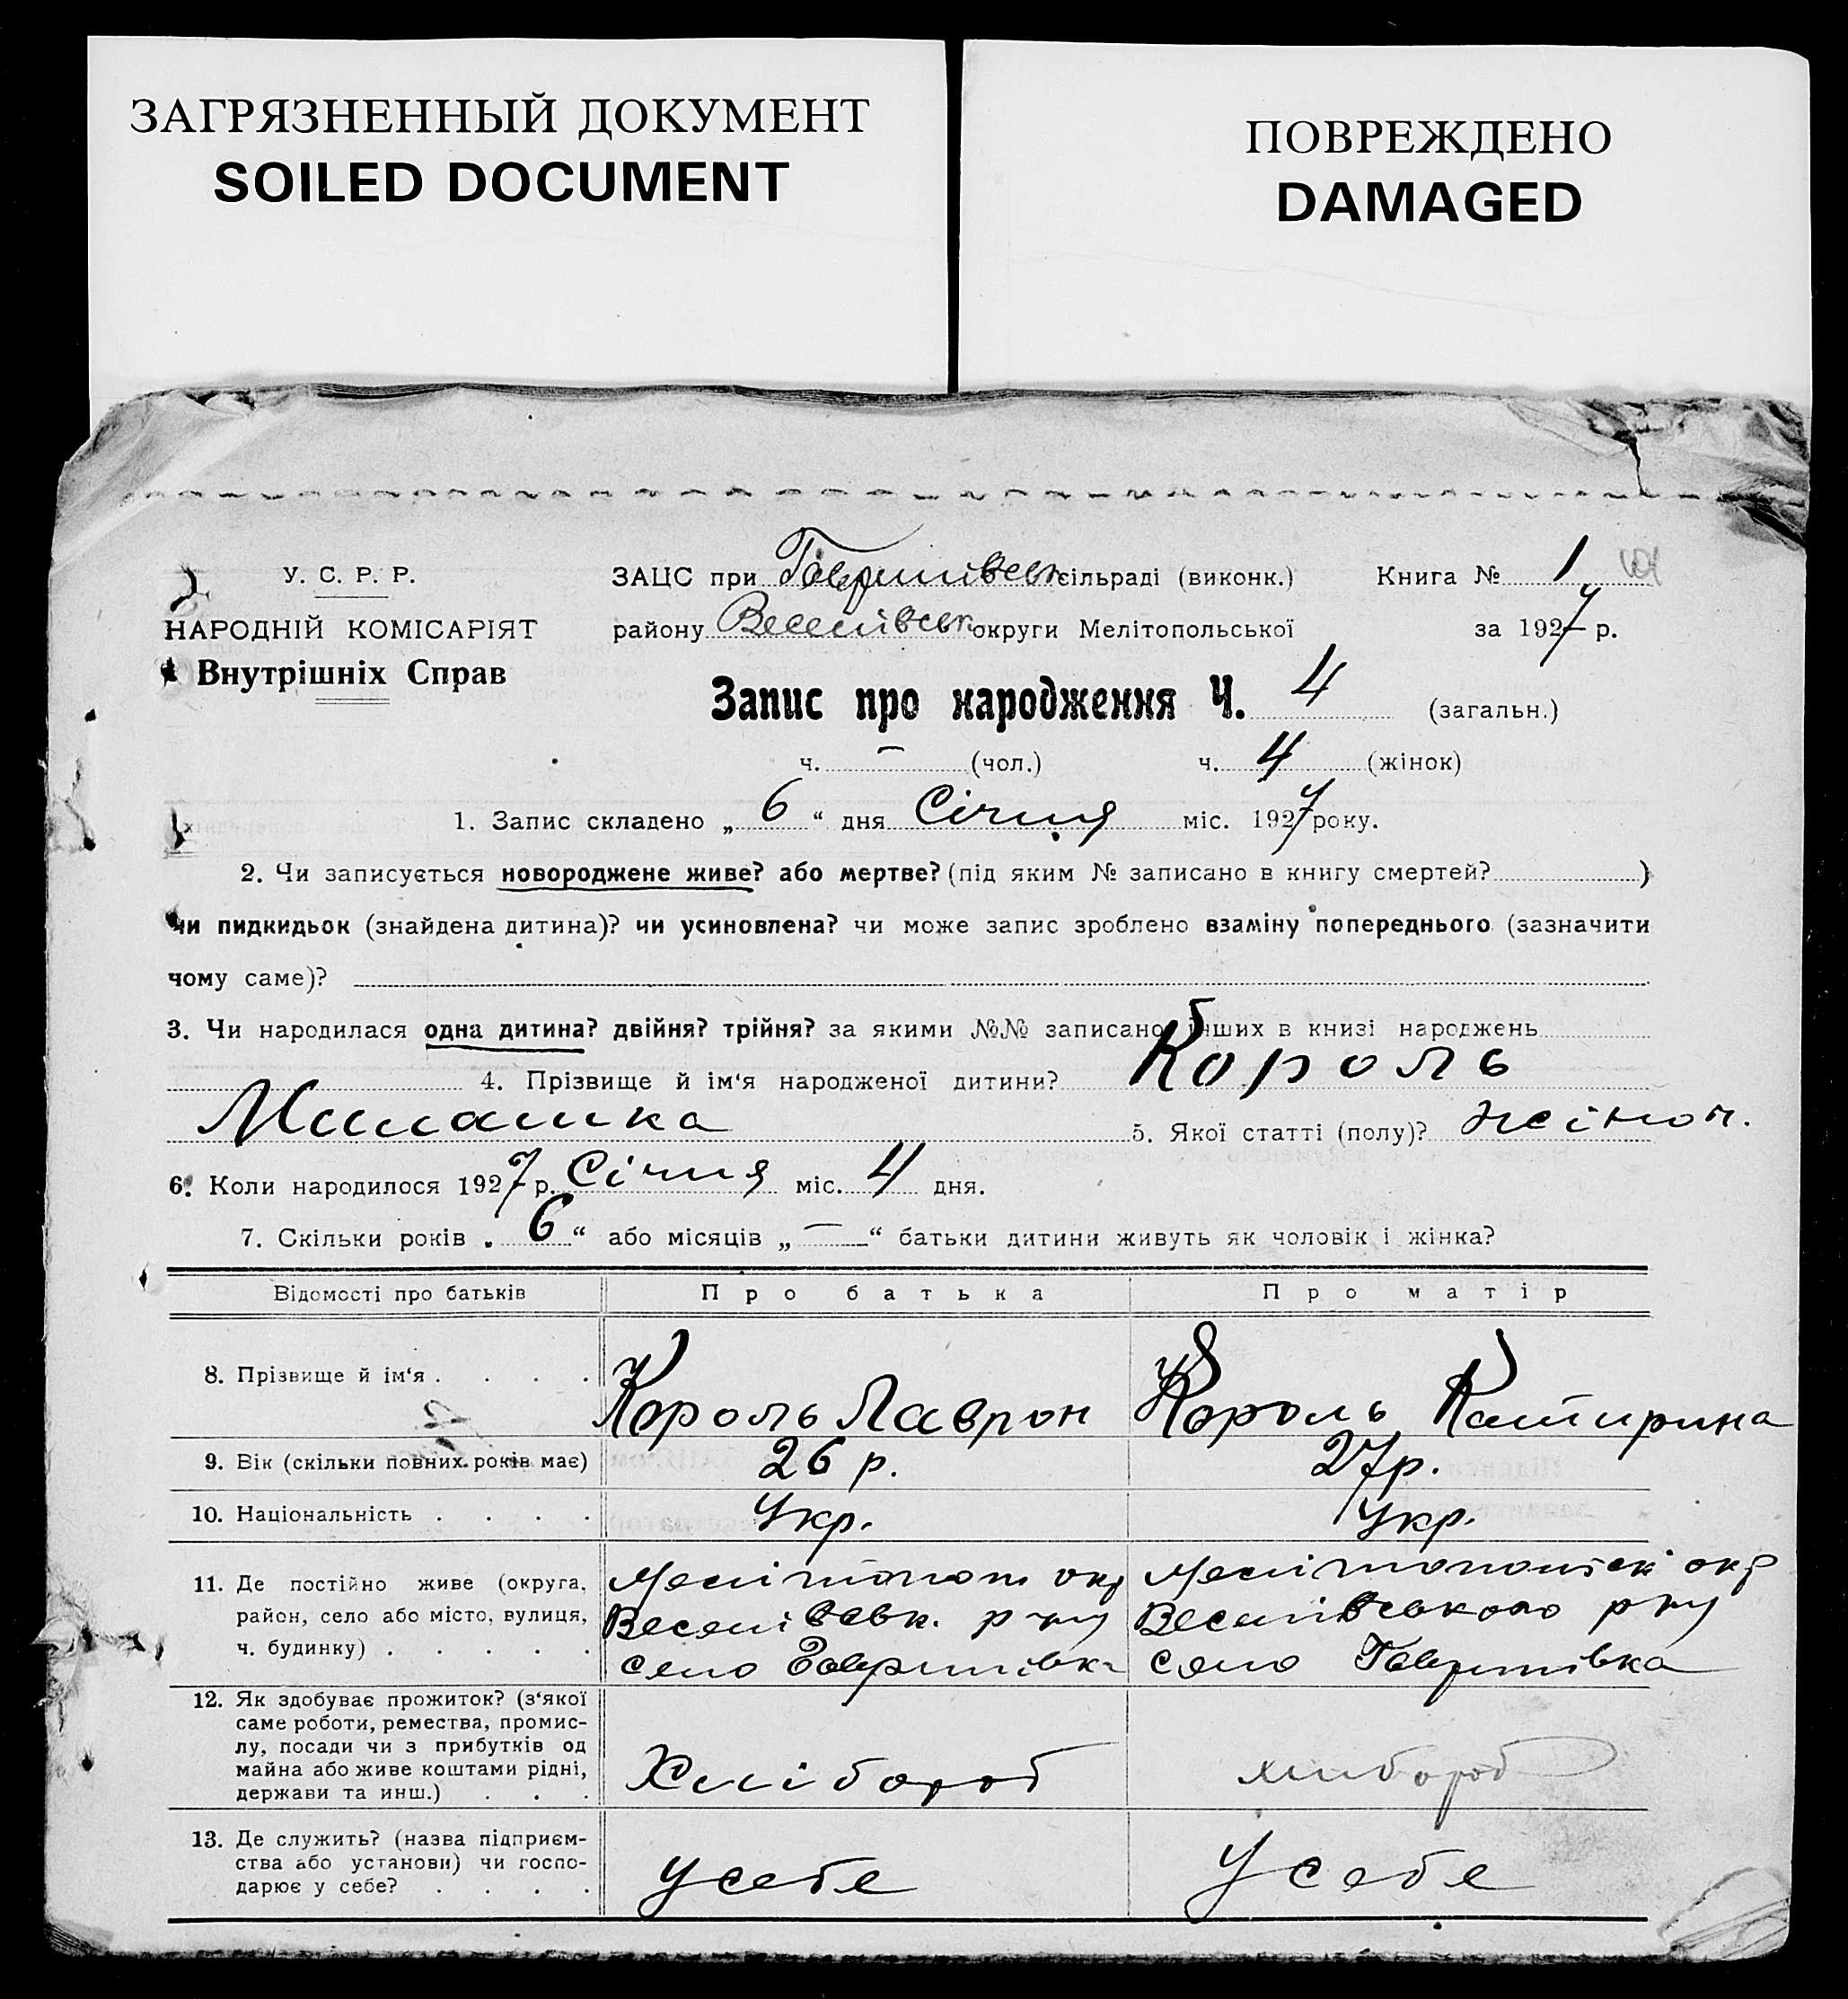 ЗАГРЯЗНЕННЫЙ ДОКУМЕНТ
SOILED DOCUMENT
ПОВРЕЖДЕНО
DAMAGED
У. С. Р. Р.
НАРОДНІЙ КОМІСАРІЯТ
Внутрішніх Справ
ЗАЦС при Гавршівськ сільраді (виконк.) Книга № 1
району Веселівськ округи Мелітопольської за 1927 р.
Запис про народження Ч. 4 (загальн.)
ч. — (чол.) ч. 4 (жінок)
1. Запис складено „ 6 “ дня Січня міс. 1927 року.
2. Чи записується новороджене живе? або мертве? (під яким № записано в книгу смертей? )
чи пидкидьок (знайдена дитина)? чи усиновлена? чи може запис зроблено взаміну попереднього (зазначити
чому саме)?
3. Чи народилася одна дитина? двійня? трійня? за якими №№ записано інших в книзі народжень
4. Прізвище й ім‘я народженої дитини? Король
Милашка 5. Якої статті (полу)? жіноч.
6. Коли народилося 1927 р. Січня міс. 4 дня.
7. Скільки років „ 6 “ або місяців „ — “ батьки дитини живуть як чоловік і жінка?
Відомості про батьків Про батька Про матір
8. Прізвище й ім‘я . . . . Король Лаврон Король Катирина
9. Вік (скільки повних років має) 26 р. 27 р.
10. Національність . . . . Укр. Укр.
11. Де постійно живе (округа, Мелітополь окр Мелітопольськ окр
район, село або місто, вулиця, Веселівськ. р-ну Веселівського рну
ч. будинку) . . . . . село Гаврилівка село Гаврилівка
12. Як здобуває прожиток? (з‘якої
саме роботи, ремества, промис-
лу, посади чи з прибутків од
майна або живе коштами рідні, Хлібороб хлибороб
держави та инш.) . . .
13. Де служить? (назва підприєм-
ства або установи) чи госпо- У себе У себе
дарює у себе? . . . .